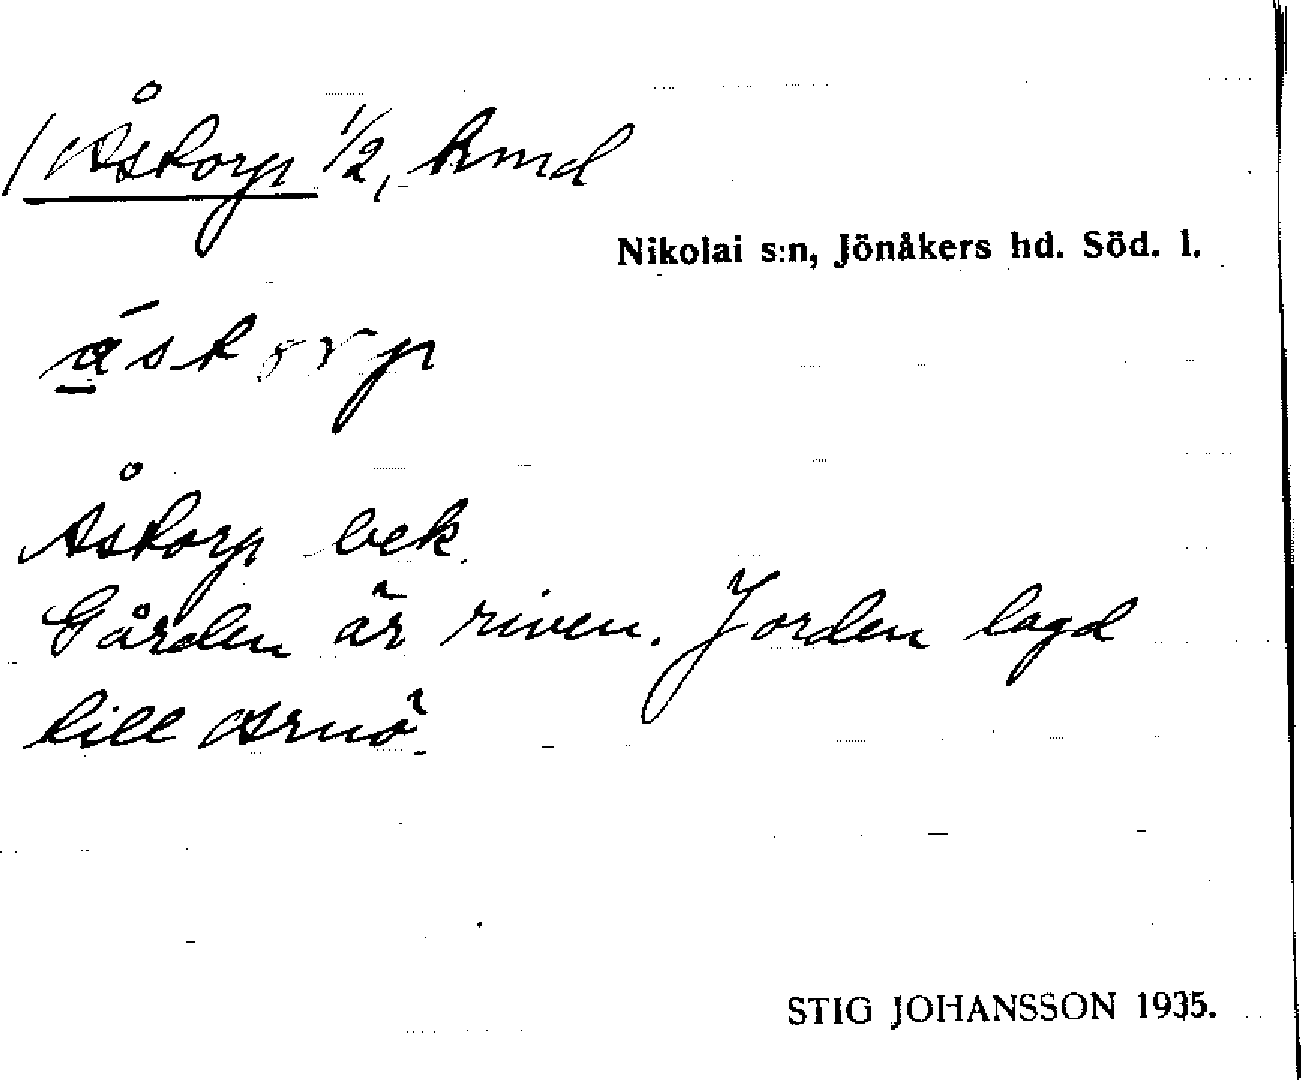 / Åstorp 1/2, hmd
Nikolai s:n, Jönåkers hd. Söd. l.
Åstorp bek.
Gården är riven. Jorden lagd
till Arnö.
STIG JOHANSSON 1935.